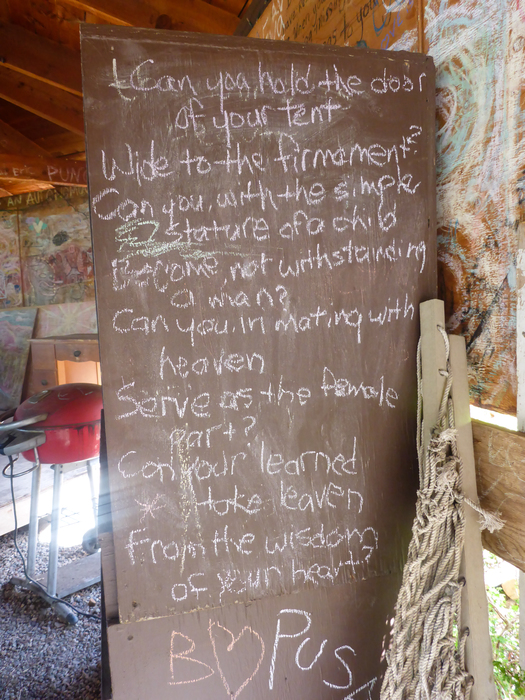 Can you, hold the door
of your tent
Wide to the firmament?
Can you, with the simple
stature of a child
Become, notwithstanding
a man?
Can you in mating with
heaven
Serve as the female
part?
Can your learned
take leaven
From the wisdom
of your heart?
B♡PUS